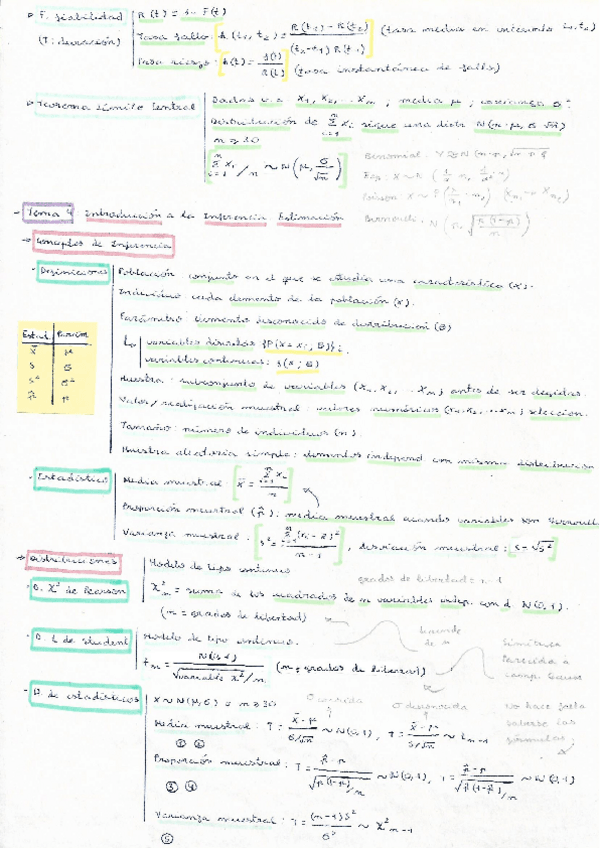 F. fiabilidad | R(t) = 1 - F(t)
(T: duración) | Tasa fallo: h(t₁, t₂) = R(t₁) - R(t₂) / (t₂ - t₁) R(t₁) (tasa media en intervalo t₁, t₂)
Tasa riesgo: h(t) = f(t) / R(t) (tasa instantánea de fallo)
Teorema Límite Central | Dadas v.a. X₁, X₂, ... Xₙ, media μ, varianza σ²
Distribución de Σ Xᵢ sigue una distr. N(n·μ, σ√n)
n ≥ 30
Σ Xᵢ / n ~ N(μ, σ/√n)
Binomial:
Poisson
Bernoulli: N(p, √(p(1-p)/n))
Tema 4 Introducción a la Inferencia Estimación
Conceptos de Inferencia
Definiciones | Población conjunto en el que se estudia una característica (X).
Individuo cada elemento de la población (X).
Parámetro elemento desconocido de distribución (θ)
variables discretas {P(X = xᵢ; θ)}ᵢ
variables continuas: f(x; θ)
Muestra: subconjunto de variables (X₁, X₂, ... Xₙ) antes de ser elegidas.
Valor/realización muestral: valores numéricos (x₁, x₂, ... xₙ) seleccion.
Tamaño: número de individuos (n).
Muestra aleatoria simple: elementos independ con misma distribución
Estad. | Parám.
x̄ | μ
s | σ
s² | σ²
p̂ | p
Estadístico | Media muestral: x̄ = Σ xᵢ / n
Proporción muestral (p̂): media muestral cuando variables son Bernoulli
Varianza muestral: s² = Σ (xᵢ - x̄)² / n - 1, desviación muestral: s = √s²
Distribuciones | Modelo de tipo continuo
grados de libertad: n - 1
D. X² de Pearson | X²ₙ = suma de los cuadrados de n variables indep. con d. N(0, 1).
(n = grados de libertad)
D. t de student | Modelo de tipo continuo.
tₙ = N(0, 1) / √(variable X²/n) (n = grados de libertad)
Simétrica
Parecida a
camp. Gauss
D. de estadísticos | X ~ N(μ, σ) o n ≥ 30
σ conocida
σ desconocida
no hace falta
saberse las
fórmulas
Media muestral: T = x̄ - μ / σ/√n ~ N(0, 1), t = x̄ - μ / s/√n ~ tₙ₋₁
① ②
Proporción muestral: T = p̂ - p / √(p(1-p)/n) ~ N(0, 1), T = p̂ - p / √(p̂(1-p̂)/n) ~ N(0, 1)
③ ④
Varianza muestral: T = (n-1) s² / σ² ~ X²ₙ₋₁
⑤